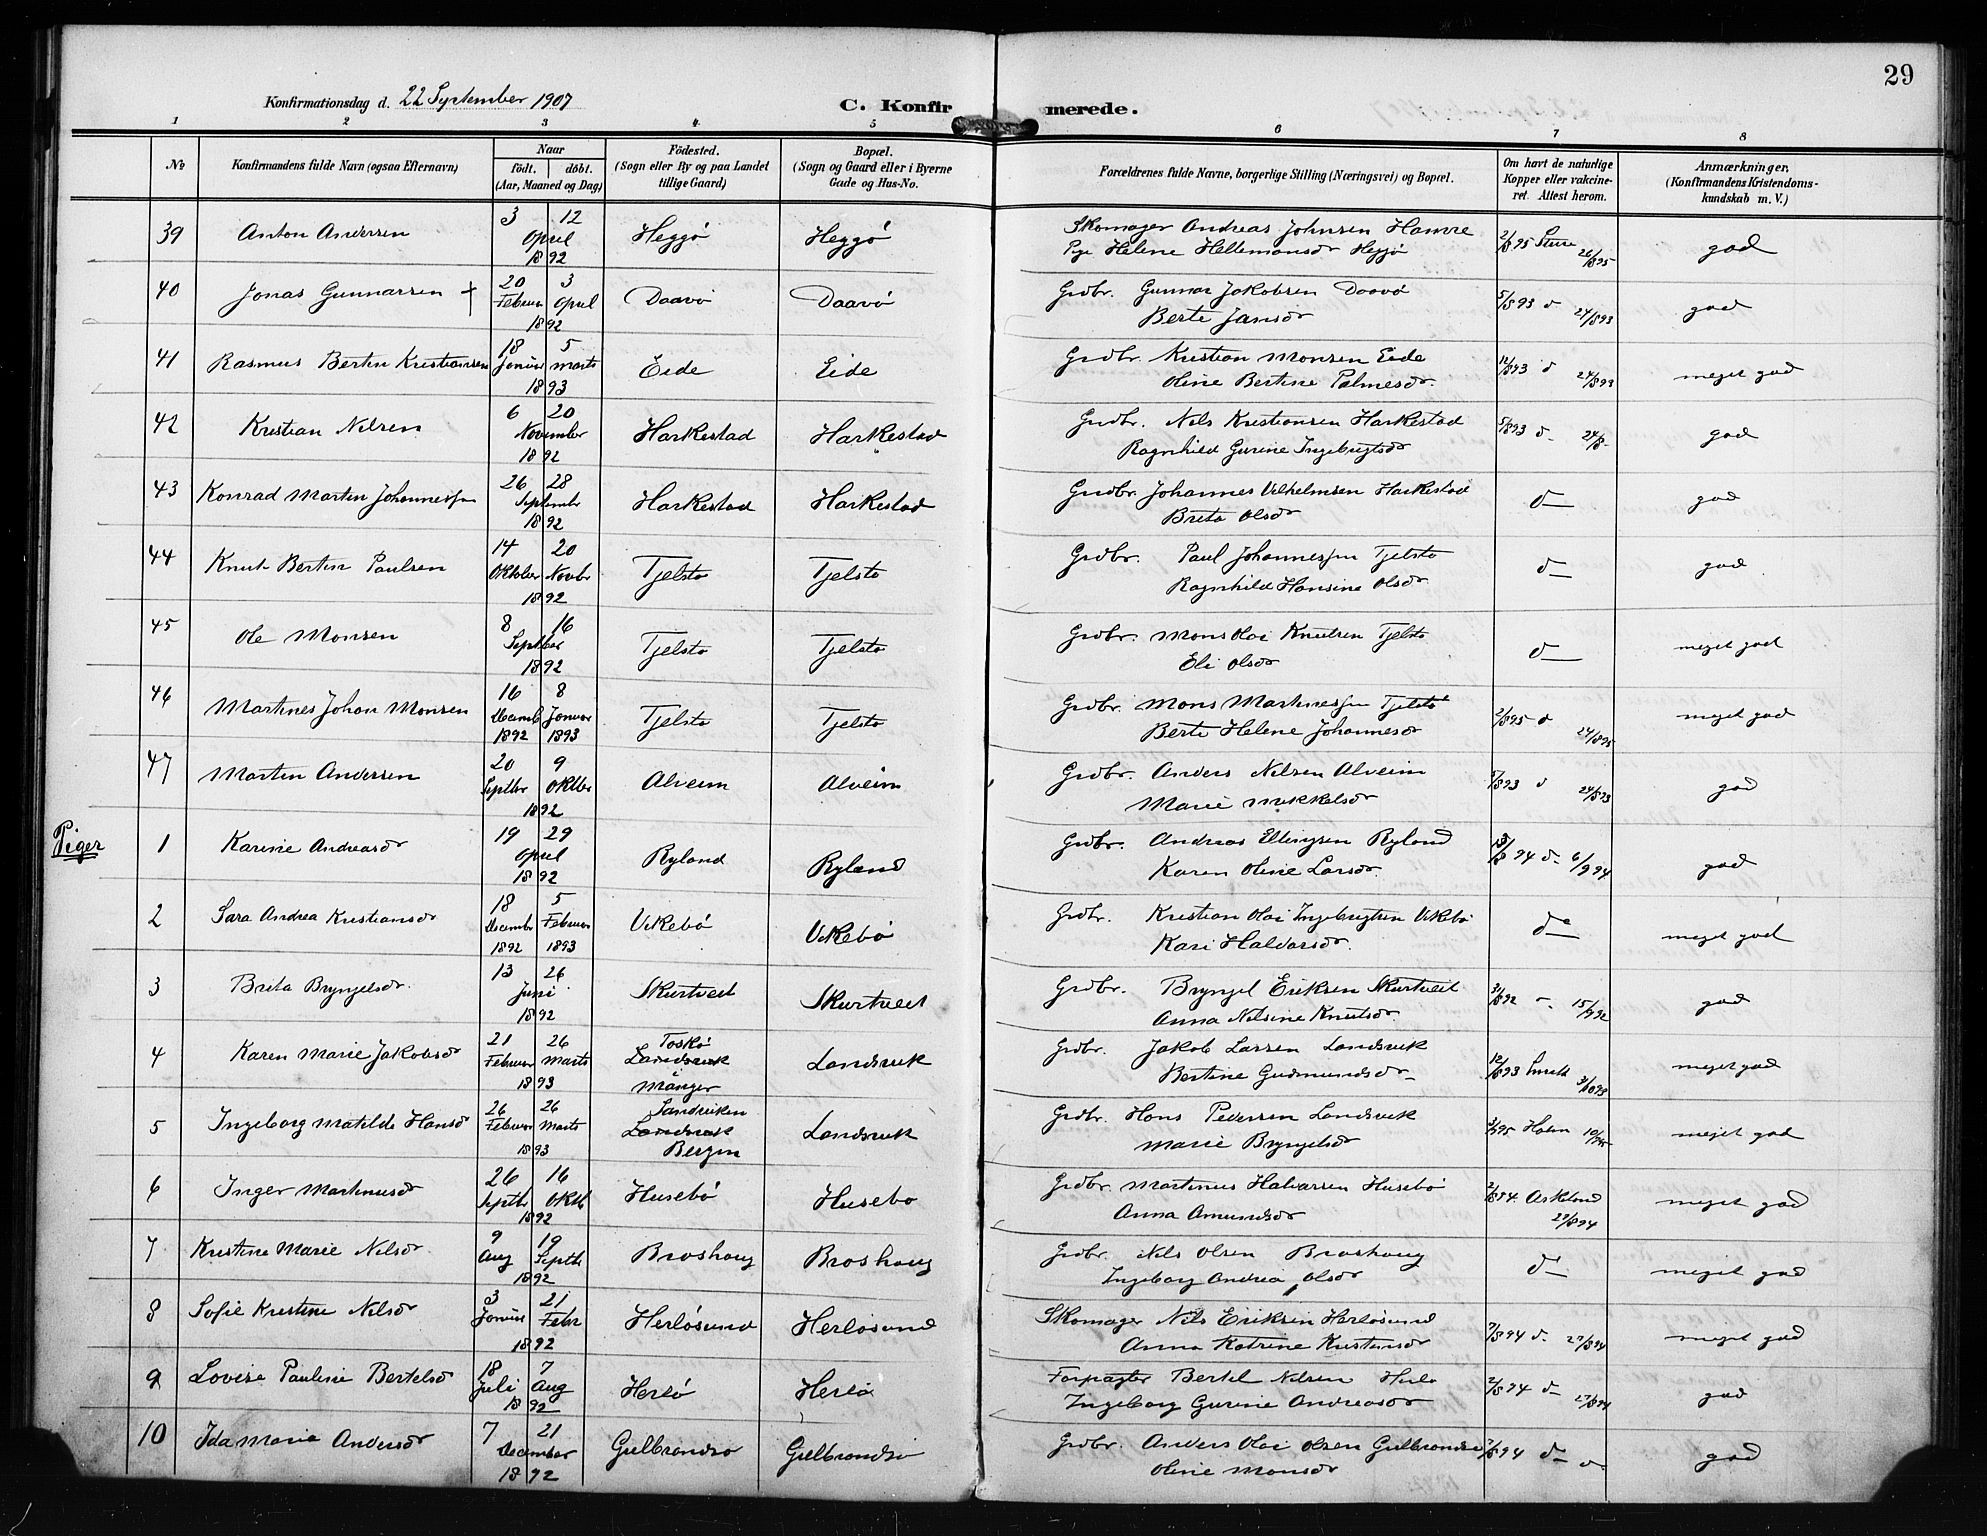 29
Konfirmationsdag d. 22 September 1907
C. Konfirmerede.
1 2 3 4 5 6 7 8
No Konfirmandens fulde Navn (ogsaa Efternavn) Naar født. døbt. (Aar, Maaned og Dag) Fødested. (Sogn eller By og paa Landet tillige Gaard) Bopæl. (Sogn og Gaard eller i Byerne Gade og Hus-No. Forældrenes fulde Navne, borgerlige Stilling (Næringsvei) og Bopæl. Om havt de naturlige Kopper eller vakcineret. Attest herom. Anmærkninger, (Konfirmandens Kristendomskundskab m. V.)
39 Anton Andersen 3 12 April 1892 Heggö Heggö Skomager Andreas Johnsen Hamre
Pge Helene Hellemansdr Heggö 26/8 95 god
40 Jonas Gunnarsen + 20 Februar 3 April 1892 Daavö Daavö Grdbr. Gunnar Jakobsen Daavö
Berte Jansdr 5/8 93 d 24/8 93 god
41 Rasmus Bertin Kristiansen 18 Januar 5 Marts 1893 Eide Eide Grdbr. Kristian Monsen Eide
Oline Bertine Palmesdr. 12/8 93 d 24/8 93 meget god
42 Kristian Nilsen 6 20 November 1892 Harkestad Harkestad Grdbr. Nils Kristiansen Harkestad
Ragnhild Gurine Ingebrigtsdr 5/8 93 d- 24/8- god
43 Konrad Martin Johannessen 26 28 September 1892 Harkestad Harkestad Grdbr. Johannes Vilhelmsen Harkestad
Brita Olsdr d- god
44 Knut Bertin Paulsen 14 Oktober 20 Novbr 1892 Tjelsto Tjelsto Grdbr. Paul Johannessen Tjelsto
Ragnhild Hansine Olsdr d- god
45 Ole Monsen 8 16 Septber 1892 Tjelsto Tjelsto Grdbr. Mons Olai Knutsen Tjelsto
Eli Olsdr d- meget god
46 Martines Johan Monsen 16 Decemb 1892 8 Januar 1893 Tjelsto Tjelsto Grdbr. Mons Martinessen Tjelsto
Berte Helene Johannesdr 2/8 95 d 24/8 95 meget god
47 Martin Andersen 20 Septbr 9 Oktber 1892 Alveim Alveim Grdbr. Anders Nilsen Alveim
Marie Mikkelsdr 5/8 93 d 24/8 93 god
Piger
1 Karine Andreasdr 19 29 April 1892 Ryland Ryland Grdbr. Andreas Ellingsen Ryland
Karen Oline Larsdr. 94 d- 6/9 94 god
2 Sara Andrea Kristiansdr 18 Decembr 1892 5 Februar 1893 Vikebö Vikebö Grdbr. Kristian Olai Ingebrigtsen Vikebö
Kari Halvorsdr. do meget god
3 Brita Bryngelsdr. 13 26 Juni 1892 Skurtveit Skurtveit Grdbr. Bryngel Eriksen Skurtveit
Anna Nilsine Knutsdr. 31/8 92 - 15/9 92 god
4 Karen Marie Jakobsdr 21 Februar 26 Marts 1893 Toskö Landsvik i Manger Landsvik Grdbr. Jakob Larsen Landsvik
Bertine Gudmundsdr- 12/8 93 meget god
5 Ingeborg Matilde Hansd 26 Februar 26 Marts 1893 Sandviken Landsvik Bergen Landsvik Grdbr. Hans Pedersen Landsvik
Marie Bryngelsdr Holm meget god
6 Inger Martinusdr 26 Septbr 16 Oktb 1892 Husebö Husebo Grdbr. Martinus Halvarsen Husebö
Anna Amundsdr 2/8 94. Askland 27/8 94 meget god
7 Kristine Marie Nilsdr. 9 Aug 19 Septb 1892 Broshaug Broshaug Grdbr. Nils Olsen Broshaug
Ingeborg Andrea Olsdr d- meget god
8 Sofie Kristine Nilsdr 3 Januar 21 Febr 1892 Herlösund Herlösund Skomager Nils Eriksen Herlösund
Anna Katrine Kristensdr 7/8 94 d- 27/8 94 meget god
9 Lovise Pauline Bertelsd 18 Juli 7 Aug 1892 Herlö Herlö Forpagter Bertel Nilsen Herlö
Ingeborg Gurine Andreasdr 2/8 94 d- 27/8 94 god
10 Ida Marie Andersdr 7 21 December 1892 Gulbrandsö Gulbrandsö Grdbr. Anders Olai Olsen Gulbrandsö
Oline Monsdr 7/8 94 d- d- god